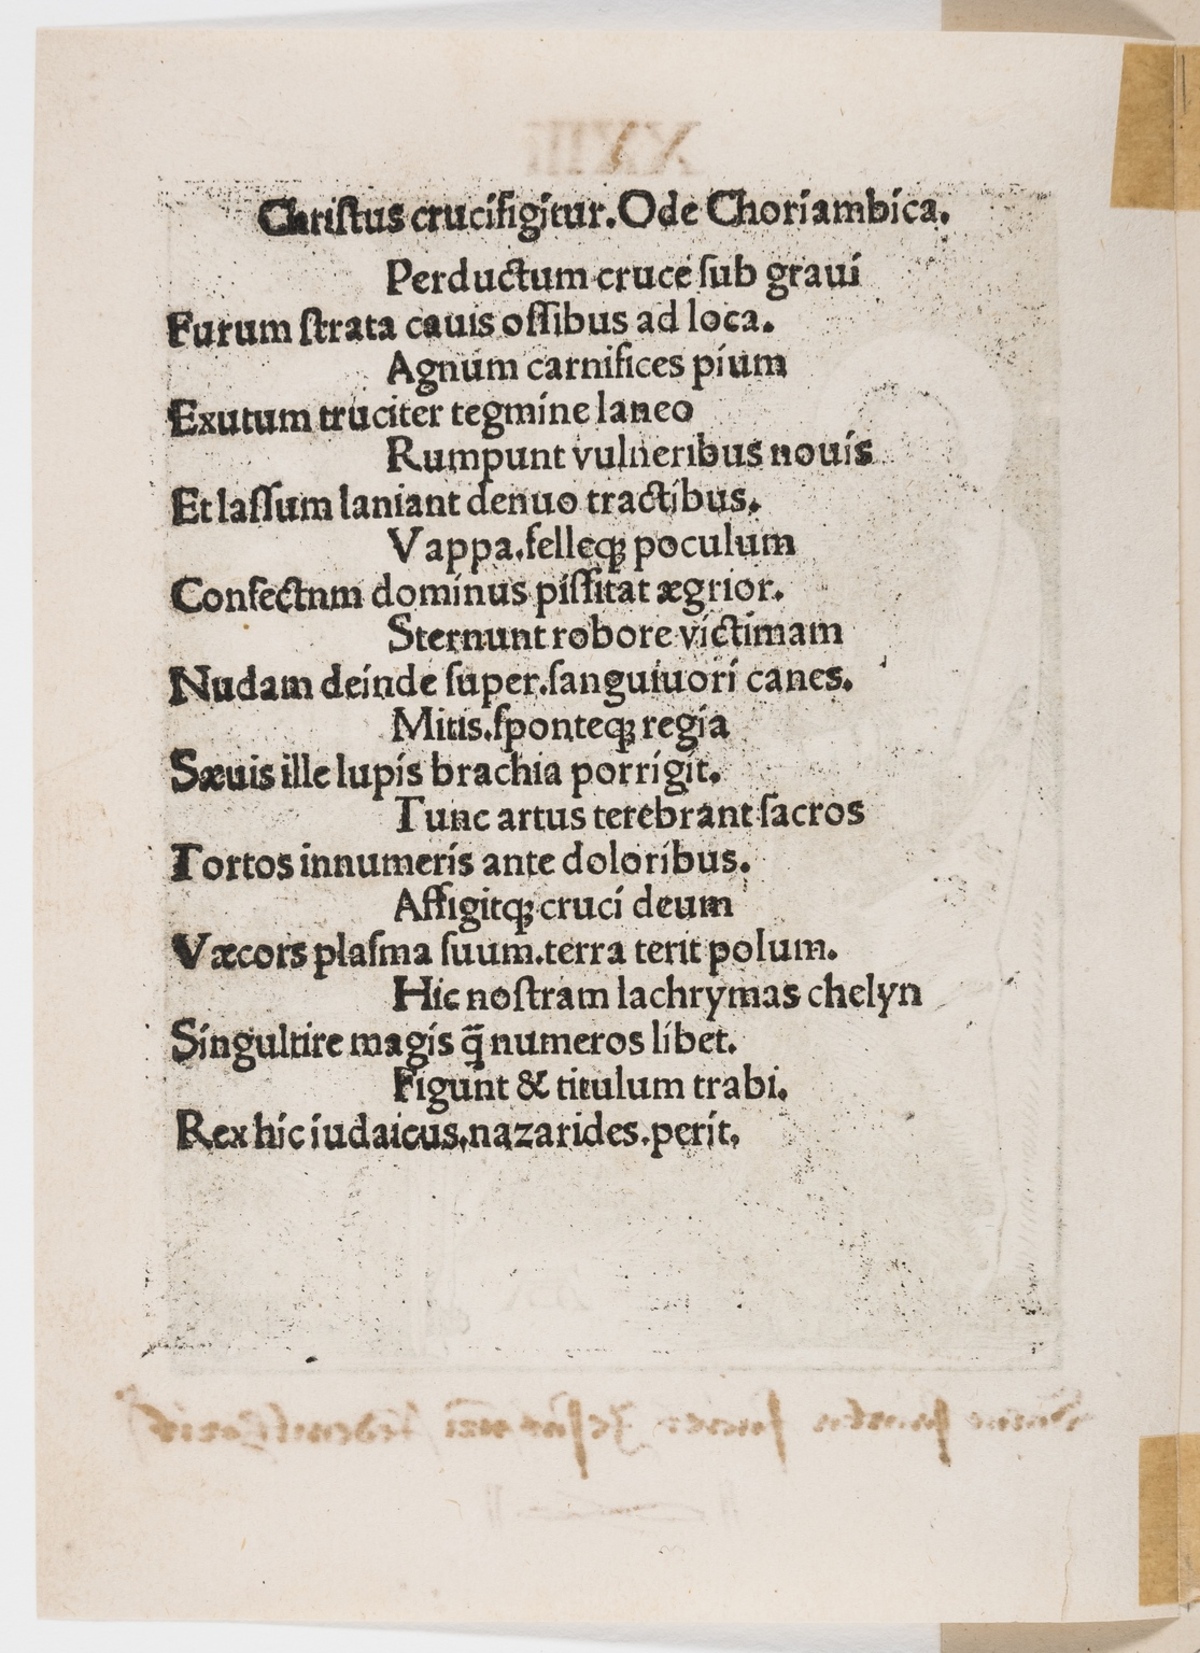 Christus crucifigitur. Ode Choriambica.
Perductum cruce sub graui
Furum strata cauis ossibus ad loca.
Agnum carnifices pium
Exutum truciter tegmine laneo
Rumpunt vulneribus nouis
Et lassum laniant denuo tractibus.
Vappa.felleqꝫ poculum
Confectnm dominus pissitat ægrior.
Sternunt robore victimam
Nudam deinde super.sanguiuori canes.
Mitis.sponteqꝫ regia
Sæuis ille lupis brachia porrigit.
Tunc artus terebrant sacros
Tortos innumeris ante doloribus.
Affigitqꝫ cruci deum
Væcors plasma suum.terra terit polum.
Hic nostram lachrymas chelyn
Singultire magis q̄ numeros libet.
Figunt & titulum trabi.
Rex hic iudaicus.nazarides.perit.